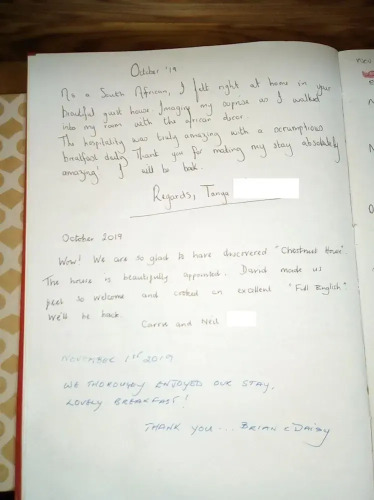 October '19
As a South African, I felt right at home in your
beautiful guest house. Imagine my surprise as I walked
into my room with the african decor.
The hospitality was truly amazing with a scrumptious
breakfast daily. Thank you for making my stay absolutely
amazing. I will be back.
Regards, Tanya
October 2019
Wow! We are so glad to have discovered "Chestnut House".
The house is beautifully appointed. David made us
feel so welcome and cooked an excellent "Full English"
We'll be back.
Carrie and Neil
NOVEMBER 1ST 2019
WE THOROUGHLY ENJOYED OUR STAY,
LOVELY BREAKFAST!
THANK YOU... BRIAN & DAISY